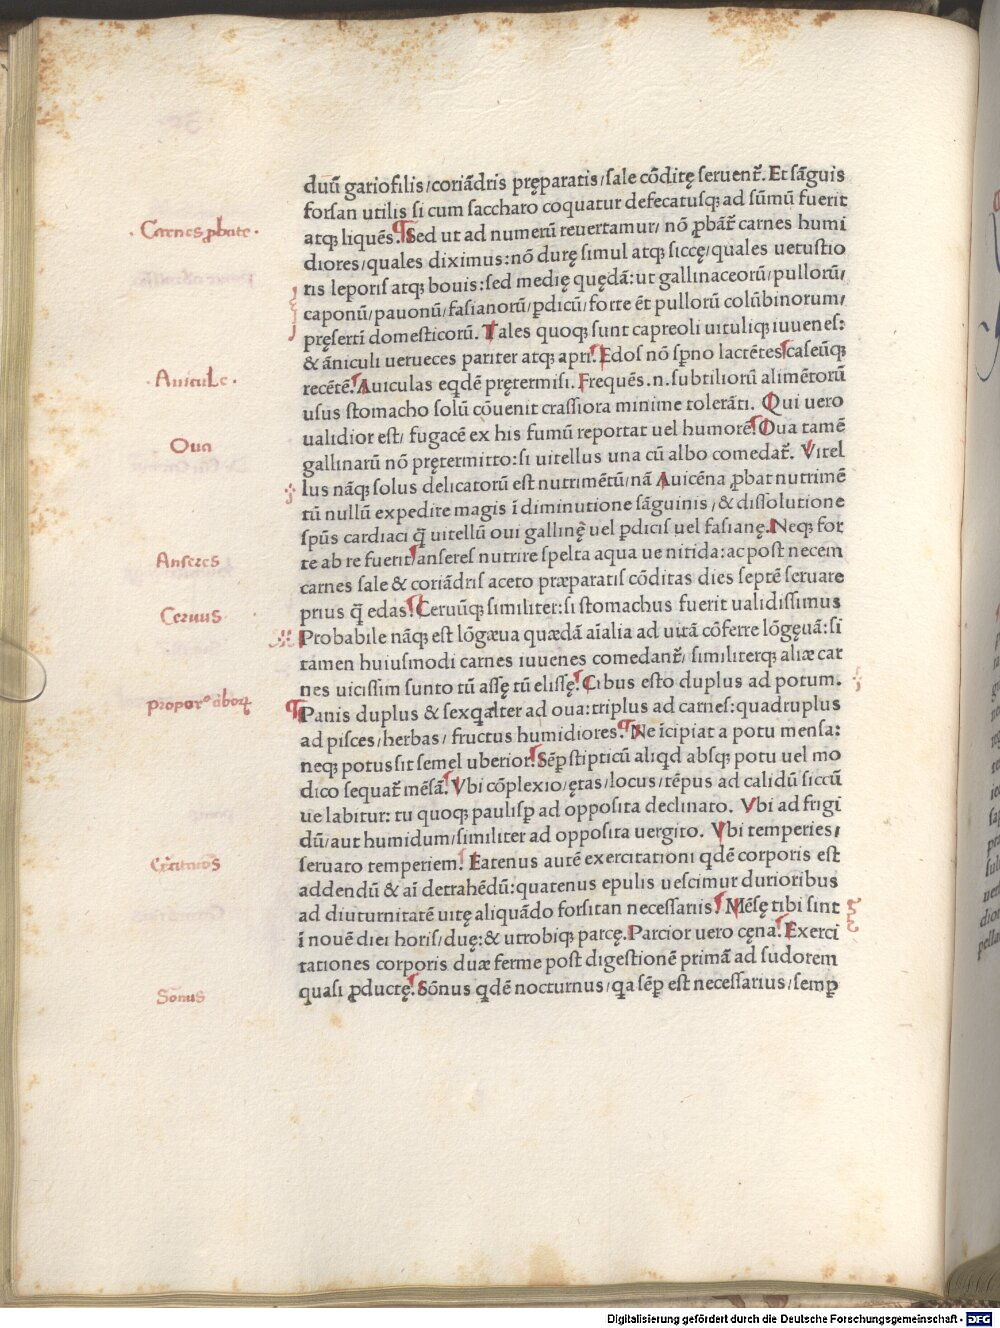 duū gariofilis/coriādris pręparatis/sale cōditę seruent᷑. Et sāguis
forsan utilis si cum saccharo coquatur defecatusqꝫ ad sūmū fuerit
· Carnes ꝓbate ·
atqꝫ liquēs. Sed ut ad numerū reuertamur/ nō ꝓbāt᷑ carnes humi
diores/quales diximus: nō durę simul atqꝫ siccę/quales uetustio
ris leporis atqꝫ bouis: sed medię quędā: ut gallinaceorū/pullorū/
caponū/pauonū/fasianorū/ꝑdicū/forte ēt pullorū colūbinorum/
pręserti domesticorū. Tales quoqꝫ sunt capreoli uituliqꝫ iuuenes:
& āniculi uerueces pariter atqꝫ apri. Edos nō sꝑno lactētes caseūqꝫ
· Auicule ·
recētē. Auiculas eqdē prętermisi. Frequēs .n. subtiliorū alimētorū
usus stomacho solū cōuenit crassiora minime tolerāti. Qui uero
Oua
ualidior est/ fugacē ex his fumū reportat uel humorē. Oua tamē
gallinarū nō prętermitto: si uitellus una cū albo comedat᷑. Vitel
lus nāqꝫ solus delicatorū est nutrimētū/nā Auicēna ꝓbat nutrimē
tū nullū expedire magis ī diminutione sāguinis/& dissolutione
spūs cardiaci q̄ uitellū oui gallinę uel ꝑdicis uel fasianę. Neqꝫ for
Anseres
te ab re fuerit anseres nutrire spelta aqua ue nitida: ac post necem
carnes sale & coriādris aceto præparatis cōditas dies septē seruare
Ceruus
prius q̄ edas. Ceruūqꝫ similiter: si stomachus fuerit ualidissimus
Probabile nāqꝫ est lōgæua quædā aīalia ad uitā cōferre lōgęuā: si
tamen huiusmodi carnes iuuenes comedant᷑/ similiterqꝫ aliæ car
nes uicissim sunto tū assę tū elissę. Cibus esto duplus ad potum.
Panis duplus & sexqalter ad oua: triplus ad carnes: quadruplus
ad pisces/herbas/ fructus humidiores. Ne īcipiat a potu mensa:
neqꝫ potus sit semel uberior. Sēꝑ stipticū aliqd absqꝫ potu uel mo
dico sequat᷑ mēsā. Vbi cōplexio/ętas/locus/tēpus ad calidū siccū
ue labitur: tu quoqꝫ paulisꝑ ad opposita declinato. Vbi ad frigi
dū/aut humidum/similiter ad opposita uergito. Vbi temperies/
seruato temperiem. Eatenus autē exercitationi qdē corporis est
addendū & aī detrahēdū: quatenus epulis uescimur durioribus
ad diuturnitatē uitę aliquādo forsitan necessariis. Mēsę tibi sint
ī nouē diei horis/duę: & utrobiqꝫ parcę. Parcior uero cęna. Exerci
tationes corporis duæ ferme post digestionē primā ad sudorem
Sōnus
quasi ꝓductę. Sōnus qdē nocturnus/qa sēꝑ est necessarius/semꝑ
Digitalisierung gefördert durch die Deutsche Forschungsgemeinschaft - DFG